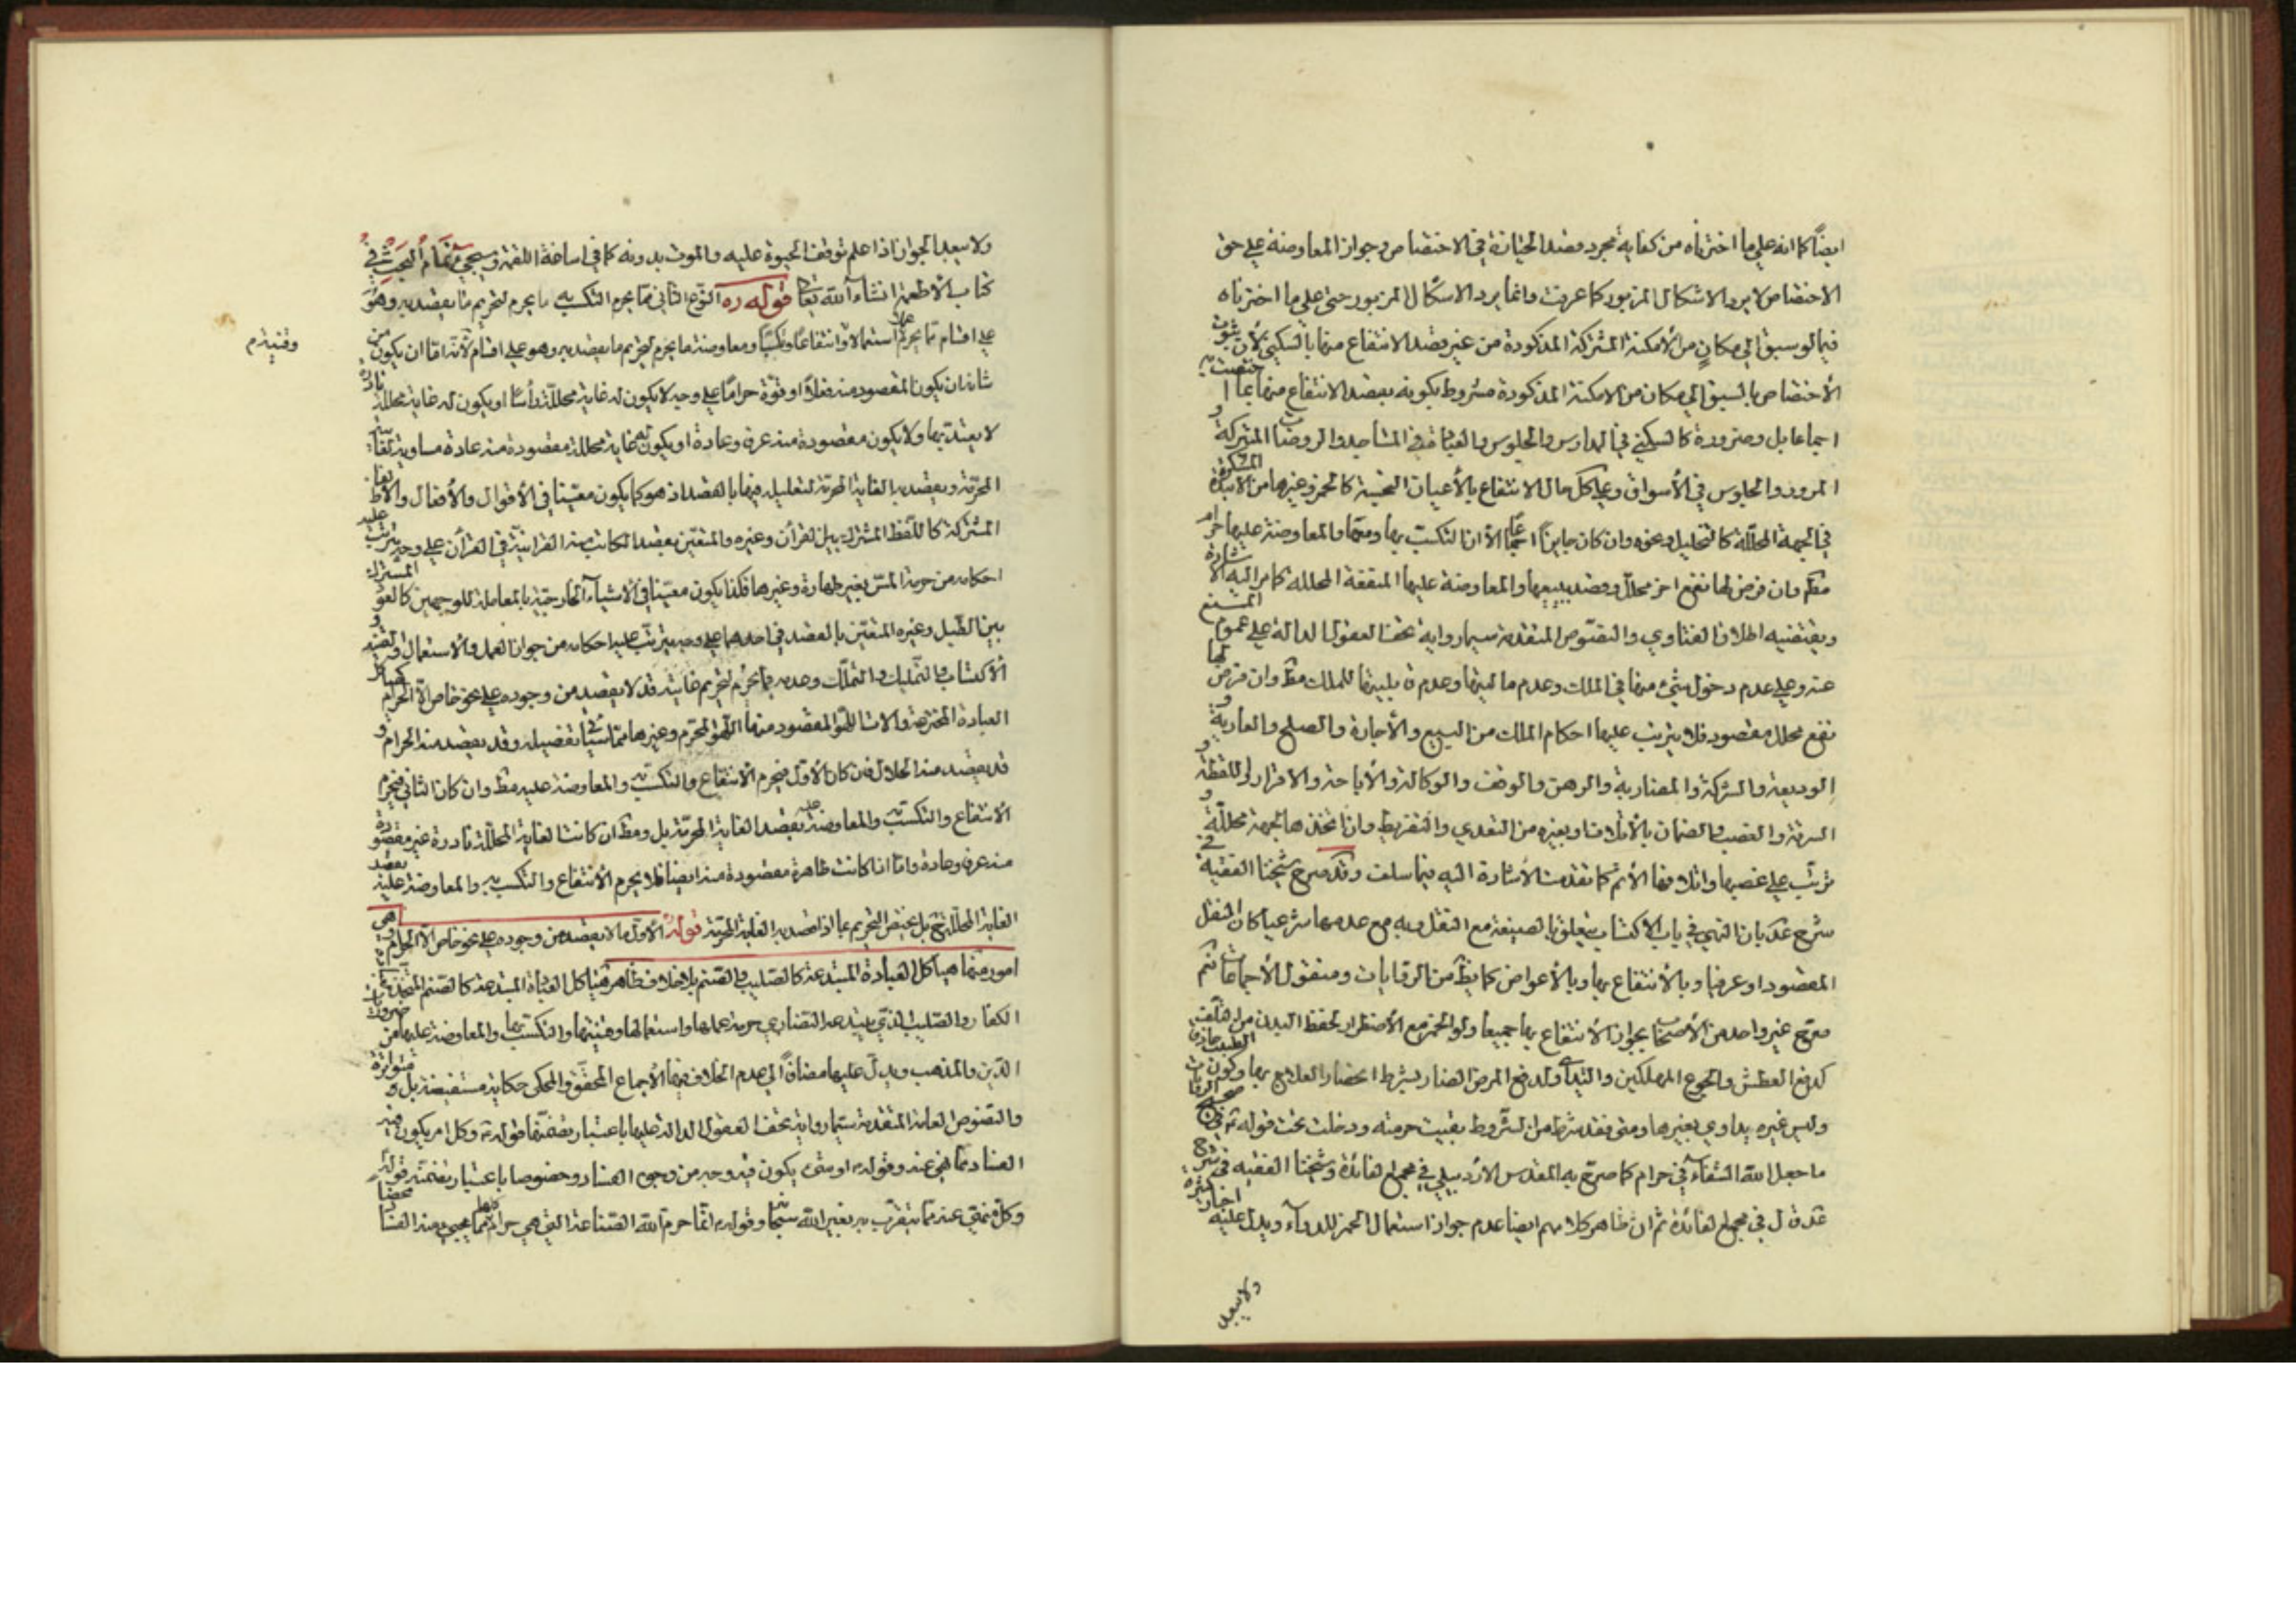 ايضاً كما انه على ما اخترناه من كفاية مجرد قصد الحيازة في الاختصاص وجواز المعاوضة على حق
الاختصاص لا يرد الاشكال المزبور كما عرفت وانما يرد الاشكال المزبور حتى على ما اخترناه
فيما لو سبق الى مكان من الأمكنة المشتركة المذكورة من غير قصد الانتفاع منها بالسكنى لأن ثبوت
الأختصاص بالسبق الى مكان من الامكنة المذكورة مشروط بكونه بقصد الانتفاع منها بما
اجماعا بل وضرورة كالسكنى في المدارس والجلوس والعبادة في المشاهد والروضات المشتركة و
المرور والجلوس في الأسواق وعلى كل حال الانتفاع بالأعيان النجسة كالخمر وغيرها من الانبذة المسكرة
في الجهة المحللة كالتخليل ونحوه وان كان جايزاً اجماعاً الا ان التكسب بها وبيعها والمعاوضة عليها حرام
مطلقا وان فرض لها نفع اخر محلل وقصد ببيعها والمعاوضة عليها المنفعة المحللة كما مر اليه الاشارة
ويقتضيه اطلاق الفتاوي والنصوص المتقدمة سيما رواية تحف العقول الدالة على عموم المنع
عنه وعلى عدم دخول شيء منها في الملك وعدم ماليتها وعدم قابليتها للملك مطلقا وان فرض لها
نفع محلل مقصود فلا يترتب عليها احكام الملك من البيع والأجارة والصلح والعارية و
الوديعة والشركة والمضاربة والرهن والوقف والوكالة والأباحة والاقرار واللقطة و
السرقة والغصب والضمان بالأتلاف او بغيره من التعدي والتفريط وان اتخذها لجهة محللة و
ترتب على غصبها واتلافها الأثم كما تقدمت الأشارة اليه فيما سلف وقد صرح شيخنا الفقيه في
شرح عد بان النهي في باب الاكتساب يتعلق بالصيغة مع النقل وبه مع عدمها شرعيا كان النقل
المقصود او عرفيا وبالأنتفاع بها وبالأعواض كما يظهر من الروايات ومنقول الأجماعات ثم
صرح غير واحد من الأصحاب بجواز الأنتفاع بها جميعا ولو الخمر مع الأضطرار لحفظ البدن من التلف
كدفع العطش والجوع المهلكين والتداوي ولدفع المرض الضار بشرط انحصار العلاج بها وكون الطبيب حاذق
وليس غيره يداوي بغيرها ومتى فقد شرط من الشروط بقيت حرمته ودخلت تحت قوله
ما جعل الله الشفاء في حرام كما صرح به المقدس الأردبيلي في مجمع الفائدة وشيخنا الفقيه في شرح
عد قال في مجمع الفائدة ثم ان ظاهر كلامهم ايضا عدم جواز استعمال الخمر للدواء ويدل عليه اخبار كثيرة
ولا يبعد
ولا يبعد الجواز اذا علم توقف الحيوة عليه والموت بدونه كما في اساغة اللقمة وسيجيء تمام البحث في
كتاب الأطعمة انشاء الله تعالى قوله ره النوع الثاني مما يحرم التكسب به ما يحرم لتحريم ما يقصد به وهو
على اقسام مما يحرم عملا واستعمالا وانتفاعاً وتكسباً ومعاوضة ما يحرم لتحريم ما يقصد به وهو على اقسام لأنه اما ان يكون من
شأنه ان يكون المقصود منه فعلا او قوة حراماً على وجه لا يكون له غاية محللة رأساً او يكون له غاية محللة نادرة
لا يعتد بها ولا يكون مقصودة منه عرفا وعادة او يكون له غاية محللة مقصودة منه عادة مساوية للغاية
المحرمة ويقصد به الغاية المحرمة لتعليله فيها بالقصد اذ هو كما يكون معينا في الأقوال والأفعال والألفاظ
المشتركة كاللفظ المشترك بين القرآن وغيره والمتعين بقصد الكاتب منه القرانية في القرآن على وجه يترتب عليه
احكامه من حرمة المس بغير طهارة وغيرها فكذا يكون معينا في الأشياء الخارجية بالمعاملة للوجهين كالعود المشترك
بين الطبل وغيره المتعين بالقصد في احدهما على وجه يترتب عليه احكامه من جواز العمل والاستعمال والقنية و
الاكتساب والتمليك والتملك وعدمه فما يحرم لتحريم غايته قد لا يقصد من وجوده على نحو خاص الا الحرام كهياكل
العبادة المخترعة والات اللهو المقصود منها اللهو المحرم وغيرها مما سيأتي تفصيله وقد يقصد منه الحرام و
قد يقصد منه الحلال فان كان الأول فيحرم الانتفاع والتكسب والمعاوضة عليه مطلقا وان كان الثاني فيحرم
الأنتفاع والتكسب به والمعاوضة عليه بقصد الغاية المحرمة بل ومطلقا ان كانت الغاية المحللة نادرة غير مقصودة
منه عرفا وعادة واما اذا كانت ظاهرة مقصودة منه ايضا فلا يحرم الأنتفاع والتكسب به والمعاوضة عليه بقصد
الغاية المحللة بل يختص التحريم بما اذا قصد به الغاية المحرمة قوله الأول ما لا يقصد من وجوده على نحو خاص الا الحرام وهي
امور منها هياكل العبادة المبتدعة كالصليب والصنم بلا خلاف ظاهر هياكل العبادة المبتدعة كالصنم المتخذ عند
الكفار والصليب الذي يبتدعه النصارى حرمة عملها واستعمالها وقنيتها والتكسب بها والمعاوضة عليها من ضروريات
الدين والمذهب ويدل عليها مضافاً الى عدم الخلاف فيها الأجماع المحقق والمحكي حكاية مستفيضة بل متواترة
والنصوص العامة المتقدمة سيما رواية تحف العقول الدالة عليها باعتبار تضمنها قوله وكل امر يكون فيه
الفساد مما نهي عنه وقوله او شيء يكون فيه وجه من وجوه الفساد وخصوصا باعتبار تضمنه قوله
وكل منهي عنه مما يتقرب به بغير الله سبحانه وقوله انما حرم الله الصناعة التي هي حرام كلها مما يجيء منه الفساد محضا
وقنيتهم